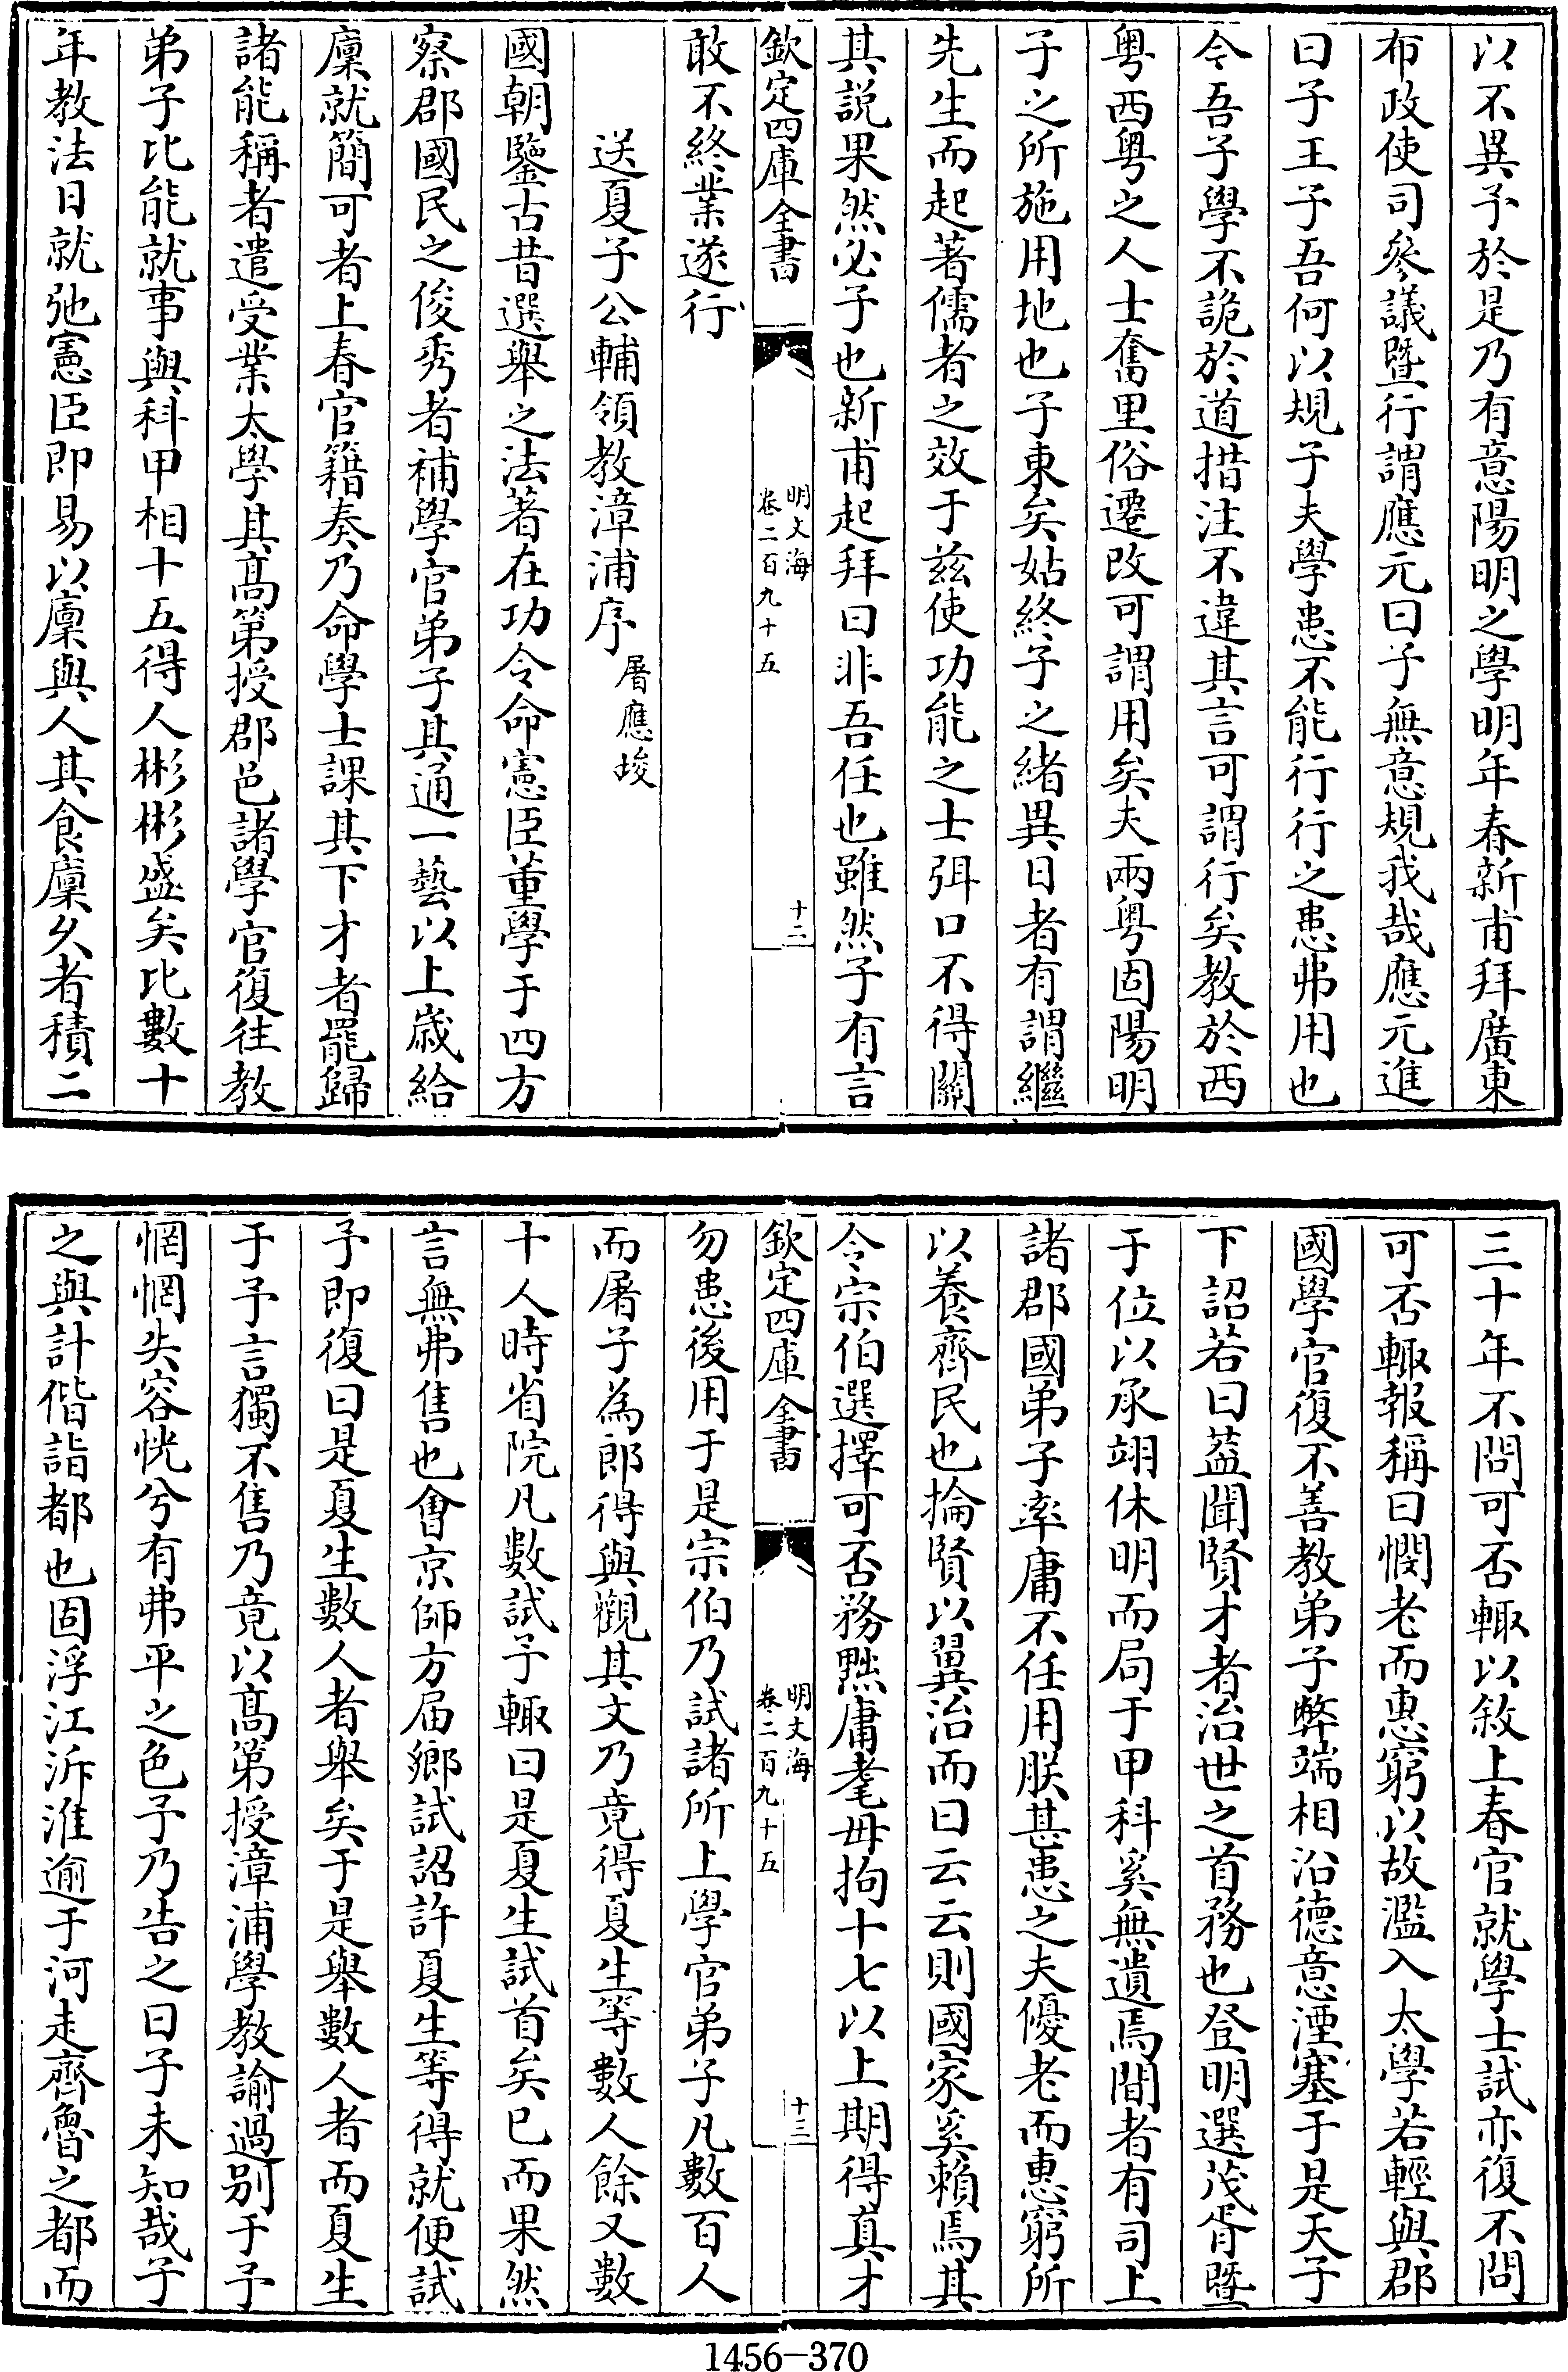 以不異予於是乃有意陽明之學明年春新甫拜廣東
布政使司參議暨行謂應元曰子無意規我哉應元進
曰子王子吾何以規子夫學患不能行行之患弗用也
今吾子學不詭於道措注不違其言可謂行矣教於西
粤西粤之人士奮里俗遷改可謂用矣夫兩粤固陽明
子之所施用地也子東矣姑終子之緒異日者有謂繼
先生而起著儒者之效于兹使功能之士弭口不得關
其説果然必子也新甫起拜曰非吾任也雖然子有言
欽定四庫全書
明文海
卷二百九十五
十二
敢不終業遂行
送夏子公輔領教漳浦序
屠應埈
國朝鑒古昔選舉之法著在功令命憲臣董學于四方
察郡國民之俊秀者補學官弟子其通一藝以上歲給
廩就簡可者上春官籍奏乃命學士課其下才者罷歸
諸能稱者遣受業太學其髙第授郡邑諸學官復往教
弟子比能就事與科甲相十五得人彬彬盛矣比數十
年教法日就弛憲臣即易以廩與人其食廩久者積二
三十年不問可否輙以敘上春官就學士試亦復不問
可否輙報稱曰憫老而惠窮以故濫入太學若輕與郡
國學官復不善教弟子弊端相沿德意湮塞于是天子
下詔若曰葢聞賢才者治世之首務也登明選茂胥暨
于位以承翊休明而局于甲科奚無遺焉間者有司上
諸郡國弟子率庸不任用朕甚患之夫優老而惠窮所
以養齊民也掄賢以翼治而曰云云則國家奚賴焉其
令宗伯選擇可否務黜庸耄毋拘十七以上期得真才
欽定四庫全書
明文海
卷二百九十五
十三
勿患後用于是宗伯乃試諸所上學官弟子凡數百人
而屠子為郎得與觀其文乃竟得夏生等數人餘又數
十人時省院凡數試予輙曰是夏生試首矣已而果然
言無弗售也會京師方届鄉試詔許夏生等得就便試
予即復曰是夏生數人者舉矣于是舉數人者而夏生
于予言獨不售乃竟以髙第授漳浦學教諭過别于予
惘惘失容恍兮有弗平之色子乃告之曰子未知哉子
之與計偕詣都也固浮江泝淮逾于河走齊魯之都而
1456—370